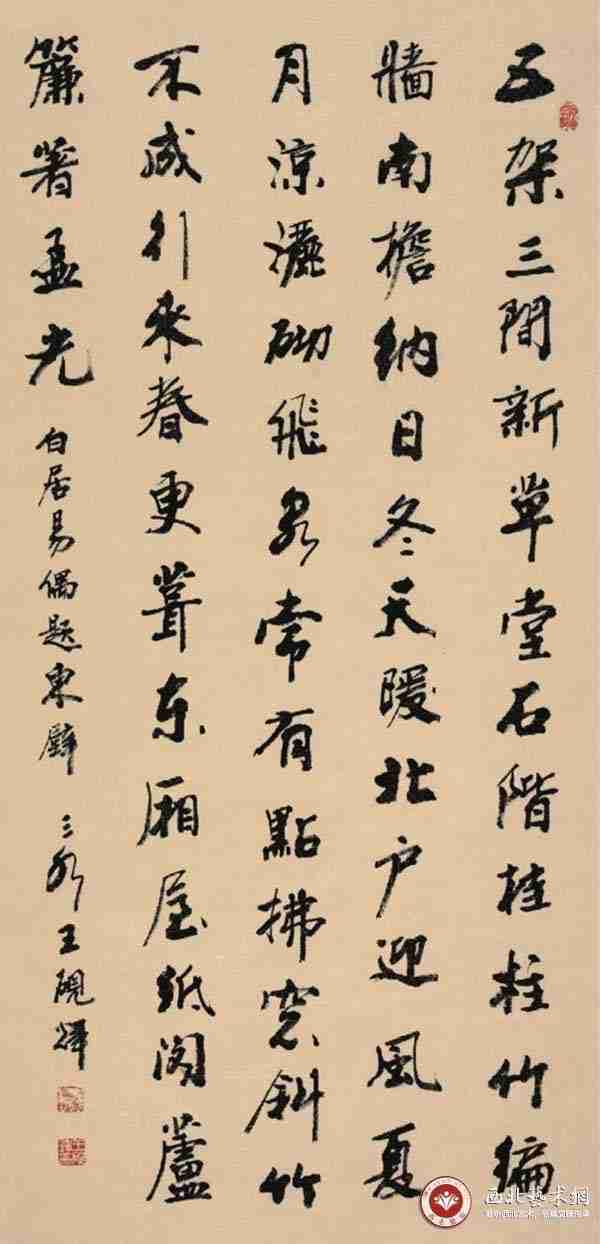 五架三間新草堂石階桂柱竹編
牆南檐納日冬天暖北户迎風夏
月涼灑砌飛泉常有點拂窓斜竹
不成行來春更葺东廂屋紙阁蘆
簾著孟光
白居易偶题東壁 三水王硯輝
西北藝术網